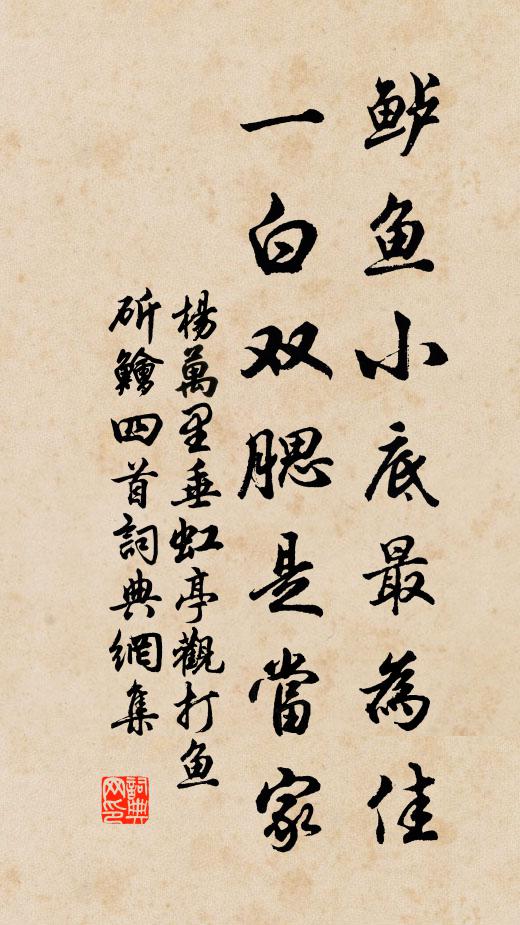 鲈鱼小底最為佳
一白双腮是當家
楊萬里垂虹亭觀打鱼
斫鱠四首詞典網集
詞典
网印